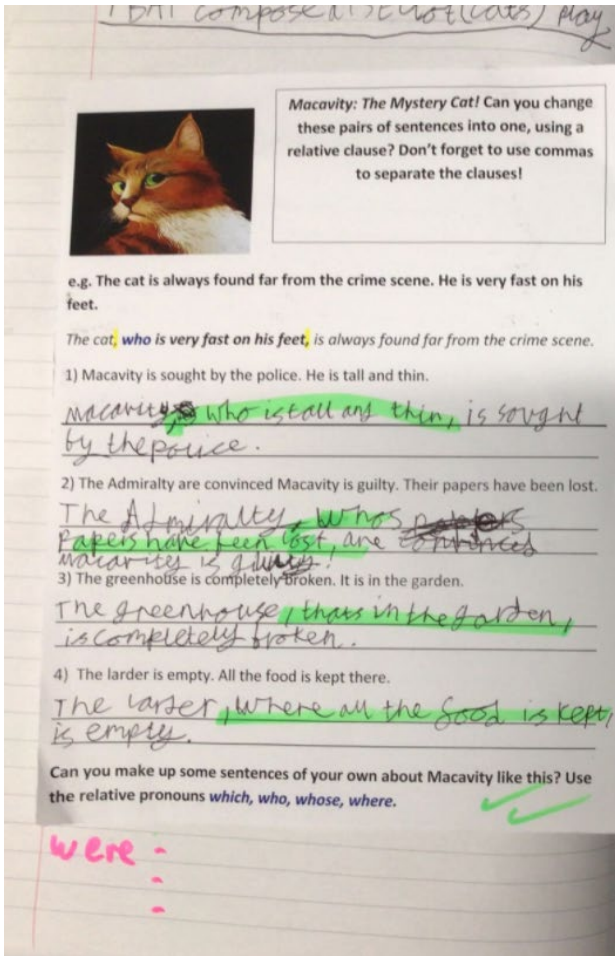 compose
play
Macavity: The Mystery Cat! Can you change
these pairs of sentences into one, using a
relative clause? Don't forget to use commas
to separate the clauses!
e.g. The cat is always found far from the crime scene. He is very fast on his
feet.
The cat, who is very fast on his feet, is always found far from the crime scene.
1) Macavity is sought by the police. He is tall and thin.
Macavity, who is tall and thin, is sought
by the police.
2) The Admiralty are convinced Macavity is guilty. Their papers have been lost.
The Admiralty, whos
Papers have been lost, are convinced
macavitey is
3) The greenhouse is completely broken. It is in the garden.
The greenhouse, thats in the garden,
is completely broken.
4) The larder is empty. All the food is kept there.
The larder, where all the food is kept,
is empty.
Can you make up some sentences of your own about Macavity like this? Use
the relative pronouns which, who, whose, where.
were -
-
-